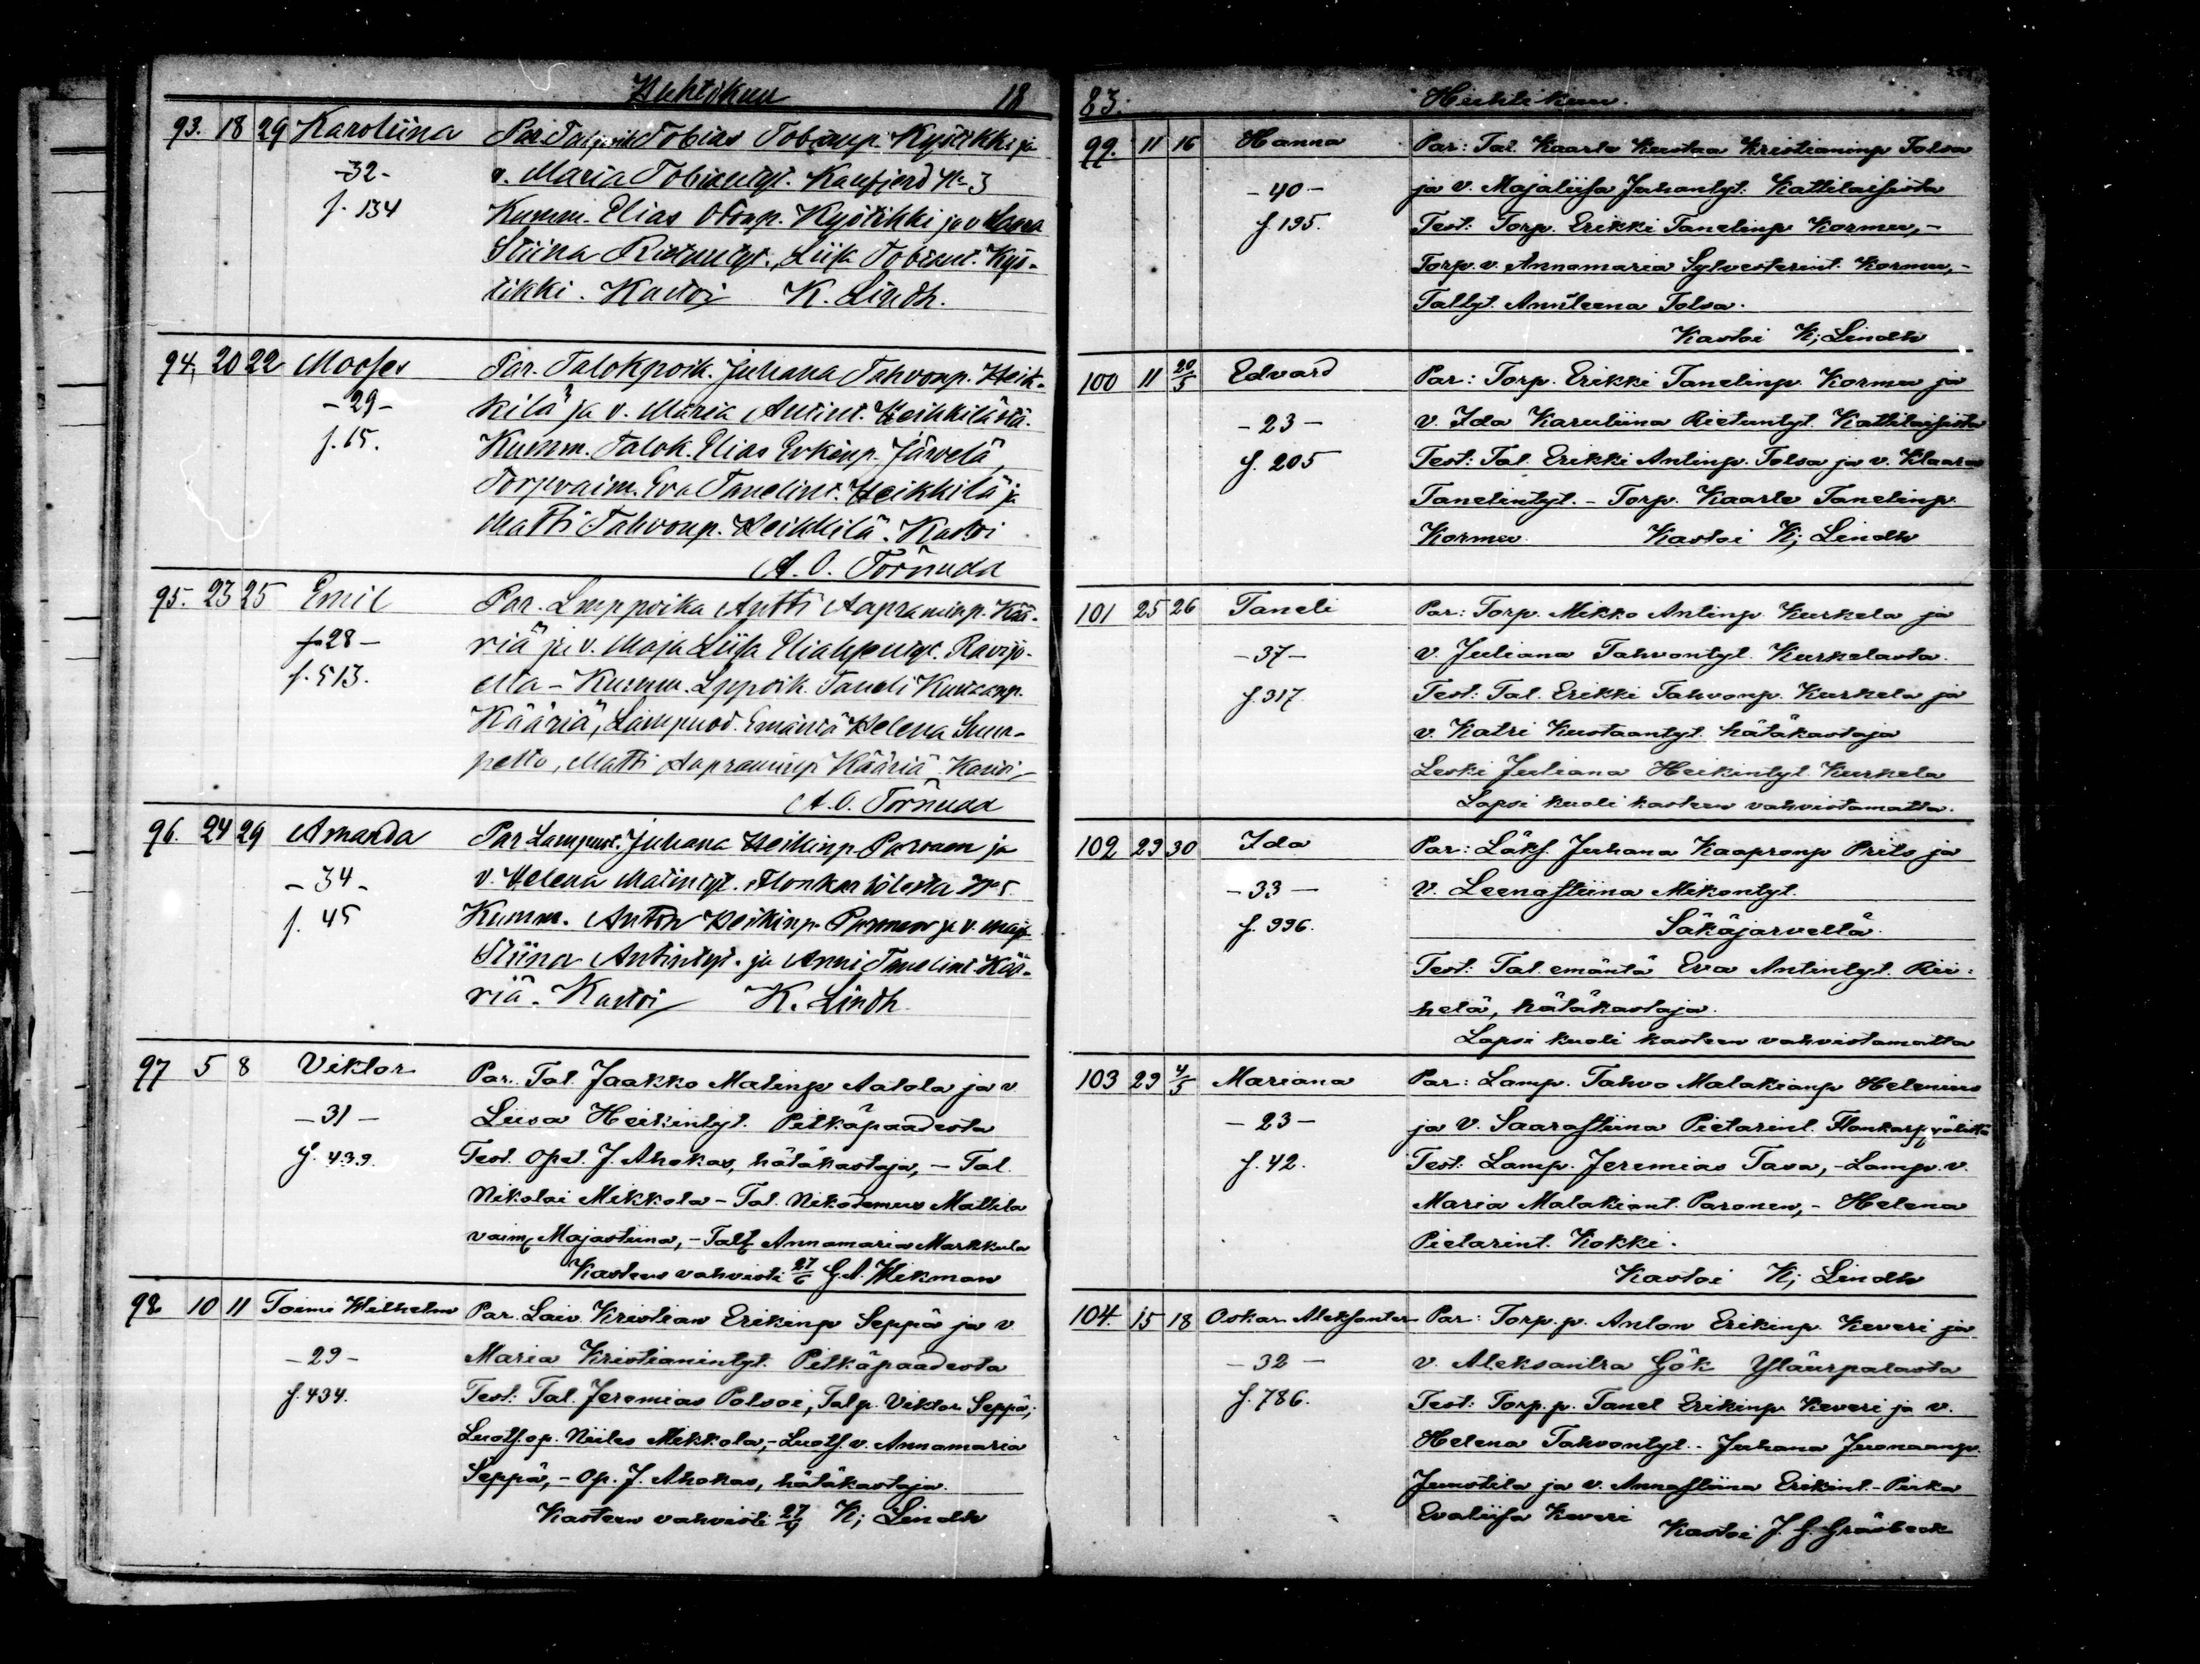 Huhtikuu 18
93. 18 29 Karoliina Par. Talpoik Tobias Tobianp. Kystikki ja
-32- v. Maria Tobiantyt. Kaufjerd No 3
f. 134 Kumm. Elias Ottonp. Kyötikki ja v. Leena
Stiina Rietuntyt., Liisa Tobiant. Kys-
tikki. Kastoi K. Lindh.
94, 20 22 Mooses Par. Talokpoik. Juhana Tahvonp. Heik-
-29- kilä ja v. Maria Antint. Heikkilästä.
f. 15. Kumm. Talok. Elias Erkinp. Järvelä,
Torpvaim. Eva Tanelint. Heikkilä ja
Matti Tahvonp. Heikkilä. Kastoi
A. O. Törnudd
95. 23 25 Emil Par. Lmppoika Antti Aapraminp. Kää-
28- riä ja v. Maja Liisa Eliahpontyt. Ravijo-
f. 513. elta - Kumm. Lppoik. Taneli Kustaanp.
Kääriä, Lampuod. Emäntä Helena Suur-
petto, Matti Aapraminp Kääriä. Kastoi
A. O. Törnudd
96. 24 29 Amanda Par Lampuot. Juhana Heikinp. Paronen ja
-34- v. Helena Matintyt. No 5
f. 45 Kumm. Anton Heikinp. Paronen ja v. Maja
Stiina Antintyt. ja Anni Tanelint. Kää-
riä. Kastoi K. Lindh.
97 5 8 Viktor Par. Tal. Jaakko Matinp Aatola ja v
-31- Liisa Heikintyt. Pitkäpaadesta
f. 439. Test. Opet. J. Ahokas, hätäkastaja, - Tal.
Nikolai Mikkola - Tal. Nikodemus Mattila
vaim Majastiina, - Talt Annamaria Markkula
Kasteen vahvisti 27/6 G.A. Wikman
98. 10 11 Toimi Wilhelm Par. Laiv. Kristian Erikinp Seppä ja v.
-29- Maria Kristianintyt. Pitkäpaadesta
f. 434. Test: Tal. Jeremias Polsoi, Tal p. Viktor Seppä,
Luots. op. Niiles Mikkola, - Luots. v. Annamaria
Seppä, - Op. J. Ahokas, hätäkastaja.
Kasteen vahvisti 27/4 K; Lindh
83. Huhtikuu.
99. 11 16 Hanna Par: Tal. Kaarle Kustaa Kristianinp Tolsa
-40- ja v. Majaliisa Juhantyt. Kattilaisista
f. 195. Test: Torp. Erikki Tanelinp Kormu, -
Torp. v. Annamaria Sylvesterint. Kormu, -
Taltyt. Anniileena Tolsa.
Kastoi K; Lindh
100 11 20/5 Edvard Par: Torp. Erikki Tanelinp. Kormu ja
-23- v. Ida Karuliina Rietuntyt. Kattilaisista
f. 205 Test: Tal. Erikki Antinp. Tolsa ja v. Klaara
Tanelintyt. - Torp. Kaarle Tanelinp.
Kormu. Kastoi K; Lindh
101 25 26 Taneli Par: Torp. Mikko Antinp Kurkela ja
-37- v. Juliana Tahvontyt. Kurkelasta.
f. 317. Test: Tal. Erikki Tahvonp. Kurkela ja
v. Katri Kustaantyt. hätäkastaja
Leski Juliana Heikintyt. Kurkela
Lapsi kuoli kasteen vahvistamatta.
102 29 30 Ida Par: Läks. Juhana Kaapronp Prils ja
-33- v. Leenastiina Mikontyt.
f. 996. Säkäjarveltä.
Test: Tal. emäntä Eva Antintyt. Rii-
helä, hätäkastaja.
Lapsi kuoli kasteen vahvistamatta
103 29 4/5 Mariana Par: Lamp. Tahvo Malakianp Helenius
-23- ja v. Saarastiina Pietarint.
f. 42. Test: Lamp. Jeremias Tasa, - Lamp. v.
Maria Malakiant. Paronen, - Helena
Pietarint. Kokki.
Kastoi K; Lindh
104. 15 18 Oskar Aleksanter Par: Torp. p. Anton Erikinp. Keveri ja
-32- v. Aleksantra Gök Yläurpalasta
f. 786. Test: Torp. p. Tanel Erikinp Keveri ja v.
Helena Tahvontyt. - Juhana Juonaanp.
Junstila ja v. Annastiina Erikint. - Piika
Evaliisa Keveri Kastoi J. G. Gräsbeck